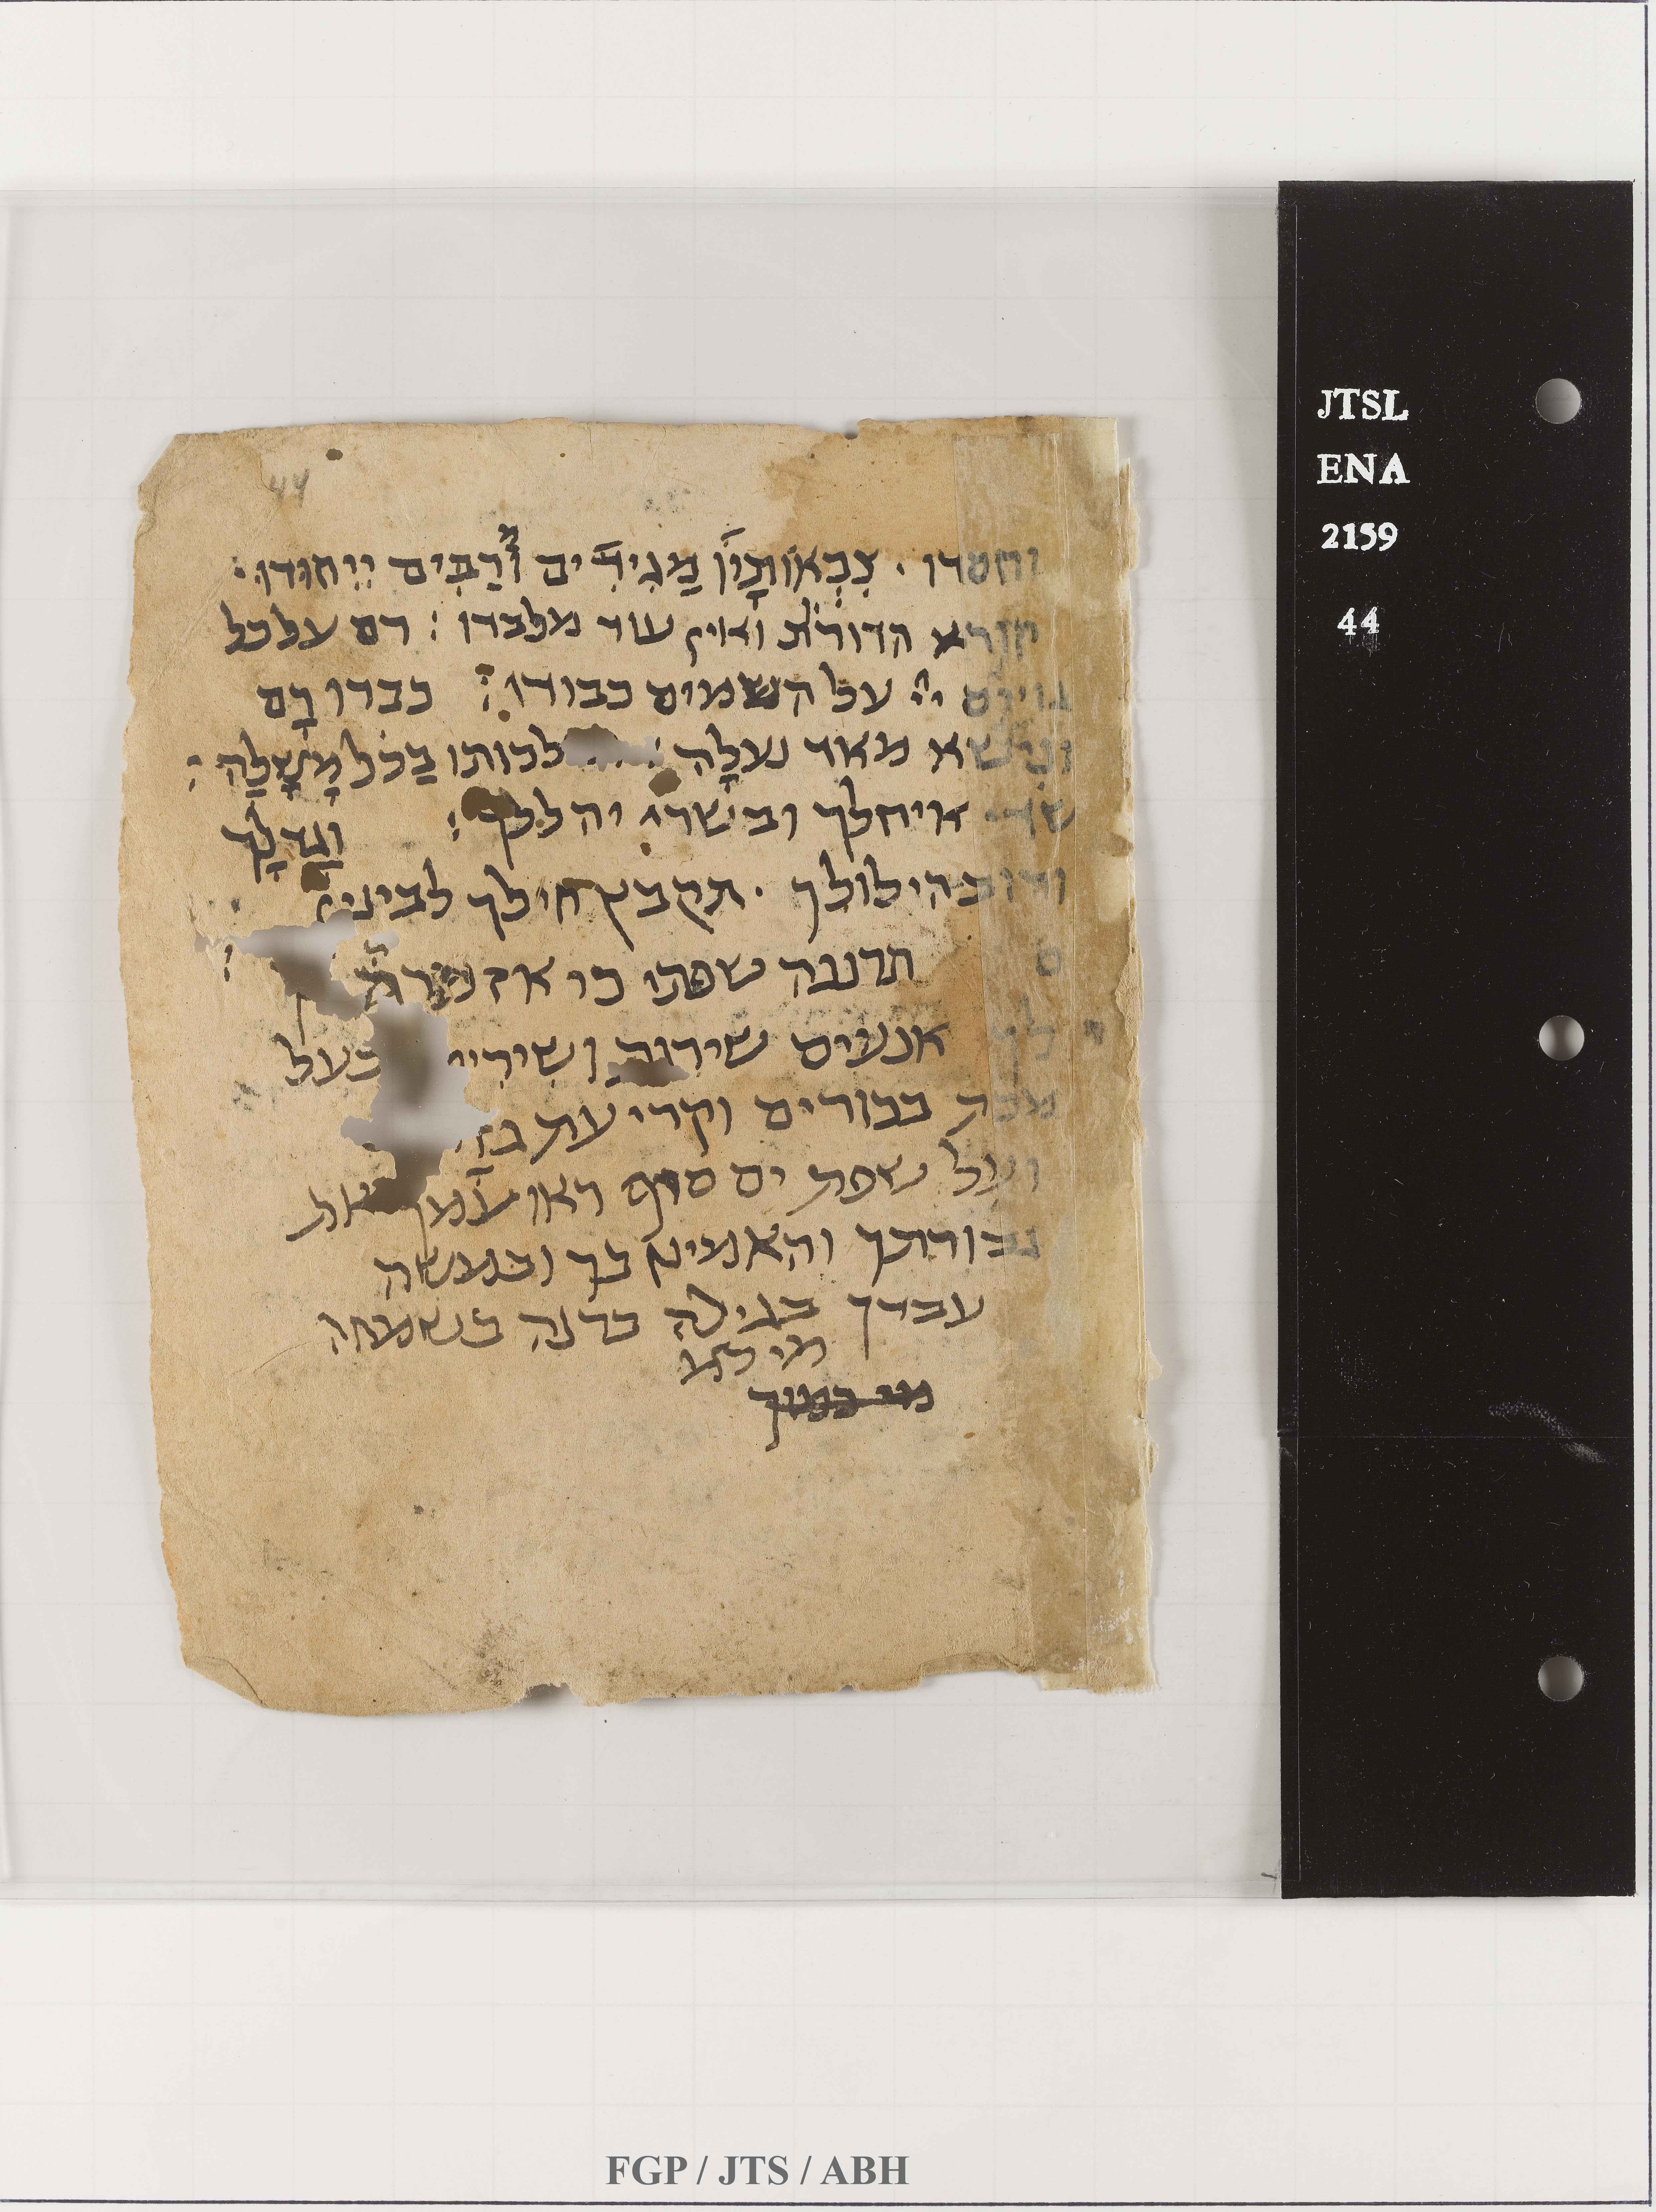 44
וחסדו · צִבְאוֹתָיו מַגִידִים וְרַבִּים יִיחוּדוֹ :
קורא הדורות ואין עוד מלבדו : רם על כל
גויים יי על השמים כבודו : כבודו רָם
ונישא מאד נעלָה : לכותו בַכֹל מָשָלָה :
שׂרי אויחלך ובשׁרי יהללך :
ורוב הילולך · תקבץ חילך לביני
תרננה שפתי כי אזמרה
אנעים שירות ושיריי בעל
מכת בכורים וקריעת
ועל שפת ים סוף ראו עמך את
גבורתך והאמינו בך ובמשה
עבדך בגילה ברנה בשמחה
מי כמוך
JTSL
ENA
2159
44
FGP / JTS / ABH